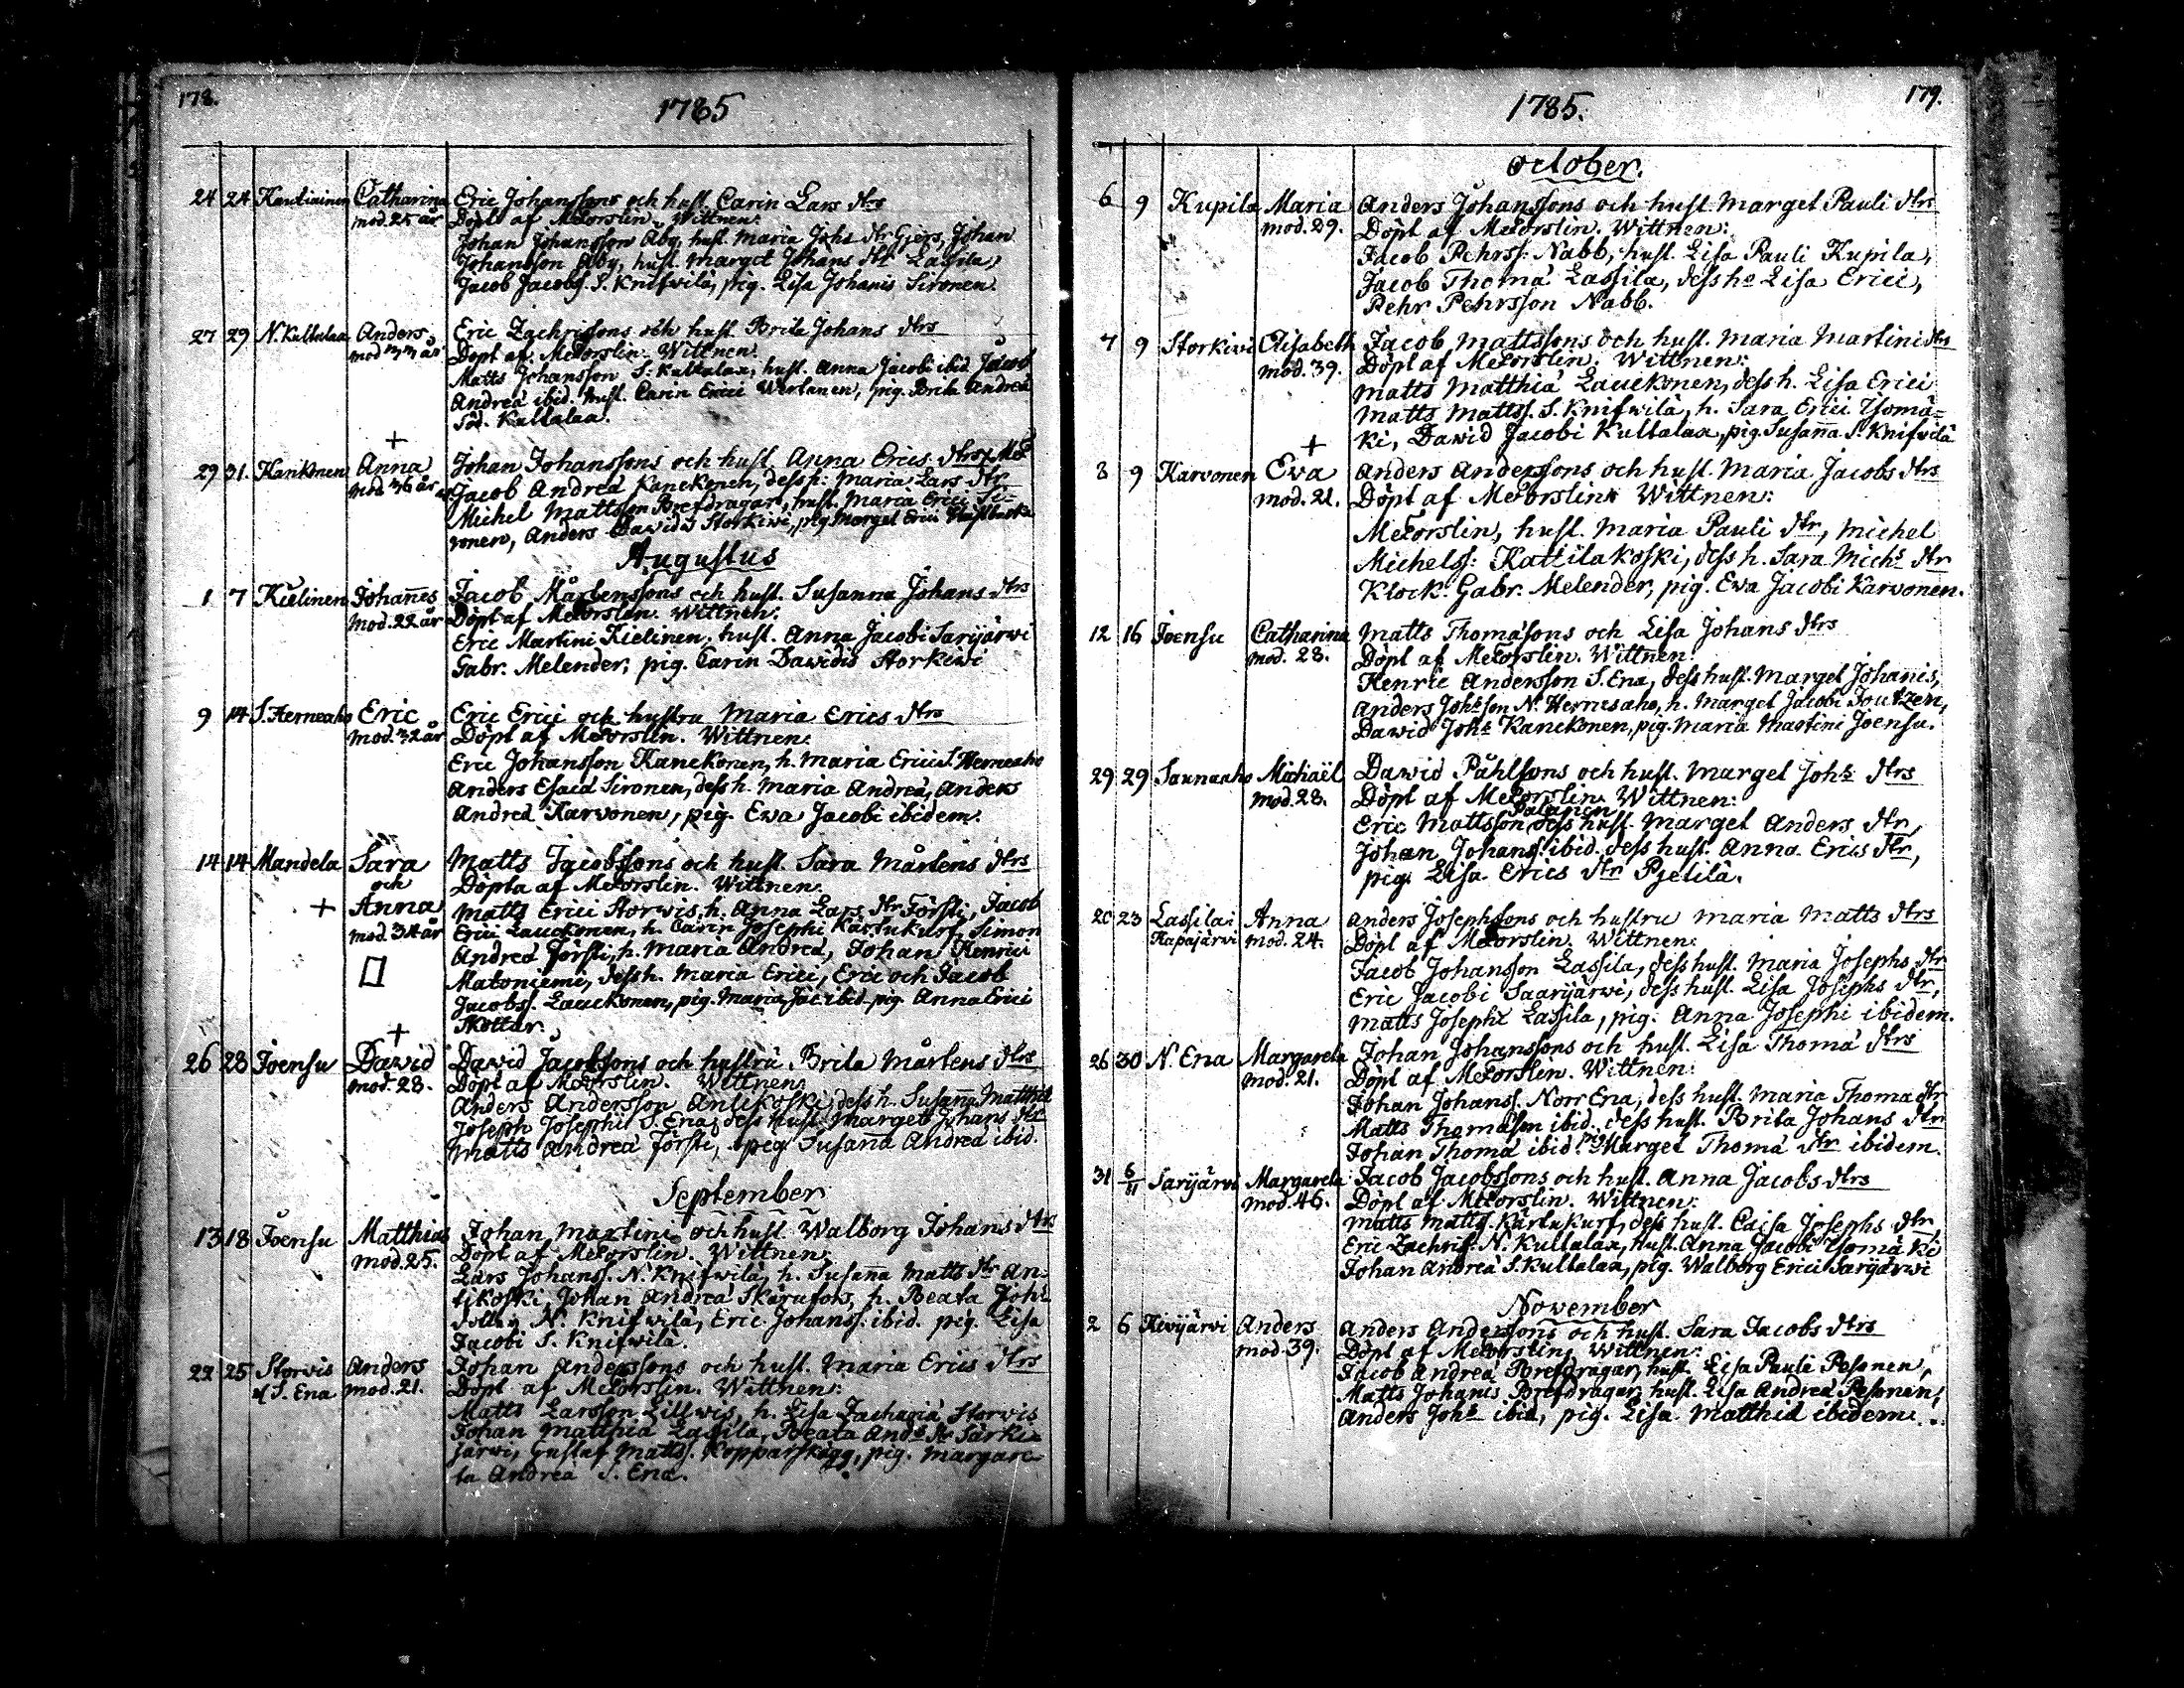 178.
1785
24 24 Kautiainen Catharina Eric Johanssons och hust. Carin Lars dtrs
mod. 25 år Döpt af MEForslin. Wittnen:
Johan Johansson Åby, hust. Maria Johs dtr Gjers, Johan
Johansson Åby, hust. Marget Johans dtr Lassila,
Jacob Jacobs. S. Knifwilä, pig. Lisa Johanis Sironen
27 29 N. Kultalaa Anders Eric Zachrissons och hust. Brita Johans dtrs
mod 33 år Döpt af MEForslin. Wittnen:
Matts Johansson S. Kultalaa, hust. Anna Jacobi ibid. Jacob
Andreä ibid. hust. Carin Erici Wirtanen, pig. Brita Andreä
Söd. Kultalaa.
+
29 31. Kankonen Anna Johan Johanssons och hust. Anna Erics dtrs
mod 36 år Jacob Andreä Kanckonen, dess h: Maria Lars dtr
Michel Mattsson Brefdragar, hust. Maria Erici Si-
ronen, Anders Dawids Storkiwi, pig. Marget Erici
Augustus
1 7 Kielinen Johannes Jacob Mårtenssons och hust. Susanna Johans dtrs
mod. 22 år Döpt af MEForslin. Wittnen:
Eric Martini Kielinen. hust. Anna Jacobi Sarijärwi
Gabr. Melender, pig. Carin Dawidis Storkiwi
9 14 S. Herneaho Eric Eric Erici och hustru Maria Erics dtrs
mod. 32 år Döpt af MEForslin. Wittnen:
Eric Johansson Kanckonen, h. Maria Erici S. Herneaho
Anders Esaiä Sironen, dess h. Maria Andreä, Anders
Andreä Karvonen, pig. Ewa Jacobi ibidem.
14 14 Mandela Sara Matts Jacobssons och hust. Sara Mårtens dtrs
och Döpta af MEForslin. Wittnen:
+ Anna Matts Erici Storwis, h. Anna Lars dtr Försti, Jacob
mod. 34 år Erici Lauckonen, h. Carin Josephi Kartukurf, Simon
Andreä Försti, h. Maria Andreä, Johan Henrici
Matoniemi, dess h. Maria Erici, Eric och Jacob
Jacobss. Lauckonen, pig. Maria Jac. ibid. pig. Anna Erici
Skottar.
+
26 28 Joensu Dawid Dawid Jacobssons och hustru Brita Mårtens dtrs
mod. 28. Döpt af MEForslin. Wittnen:
Anders Andersson Antikoski, dess h. Susanna Matthiä
Joseph Josephi S. Ena, dess hust. Marget Johans dtr
Matts Andreä Försti, pig. Susana Andreä ibid.
September
13 18 Joensu Matthias Johan Martini och hust. Walborg Johans dtrs
mod. 25. Döpt af MEForslin. Wittnen:
Lars Johanss. N. Knifwilä, h. Susanna Matts dtr An-
tikoski, Johan Andreä Skarufors, h. Beata Johs
N. Knifwilä, Eric Johanss. ibid. pig. Lisa
Jacobi S. Knifwilä.
22 25 Storvis Anders Johan Anderssons och hust. Maria Erics dtrs
af S. Ena mod. 21. Döpt af MEForslin. Wittnen:
Matts Larsson Lillwis, h. Lisa Zachariä Storvis
Johan Matthiä Lassila, Beata Ands dtr Särki-
järwi, Gustaf Matts. Kopparskägg, pig. Margare-
ta Andreä S. Ena.
179.
1785.
October.
6 9 Kupila Maria Anders Johanssons och hust. Marget Pauli dtrs
mod. 29. Döpt af MEForslin. Wittnen:
Jacob Pehrss: Nabb, hust. Lisa Pauli Kupila,
Jacob Thomä Lassila, dess ho Lisa Erici,
Pehr Pehrsson Nabb.
7 9 Storkiwi Elisabeth Jacob Mattssons och hust. Maria Martini dtrs
mod. 39. Döpt af MEForslin. Wittnen:
Matts Matthiä Lauckonen, dess h. Lisa Erici
Matts Mattss. S. Knifwilä, h. Sara Erici Isomä-
ki, Dawid Jacobi Kultalaa, pig. Susanna S. Knifwilä
+
8 9 Karvonen Ewa Anders Anderssons och hust. Maria Jacobs dtrs
mod. 21. Döpt af MEForslin. Wittnen:
MEForslin, hust. Maria Pauli dtr, Michel
Michelss: Kattilakoski, dess h. Sara Michs dtr
Klock. Gabr. Melender, pig. Ewa Jacobi Karvonen.
12 16 Joensu Catharina Matts Thomäsons och Lisa Johans dtrs
mod. 28. Döpt af MEForslin. Wittnen:
Henric Andersson S. Ena, dess hust. Marget Johannis,
Anders Johsson N. Hernesaho, h. Marget Jacobi Joutzen,
Dawid Johs Kanckonen, pig. Maria Martini Joensu.
29 29 Saunaaho Michaël Dawid Påhlsons och hust. Marget Johs dtrs
mod. 28. Döpt af MEForslin. Wittnen:
Palanen
Eric Mattsson dess hust. Marget Anders dtr,
Johan Johanss. ibid. dess hust. Anna Erics dtr,
pig. Lisa Erics dtr Pjetilä.
20 23 Lassila i Anna Anders Josephssons och hustru Maria Matts dtrs
Haapajärvi mod. 24. Döpt af MEForslin. Wittnen:
Jacob Johansson Lassila, dess hust. Maria Josephs dtr
Eric Jacobi Saarijärwi, dess hust. Lisa Josephs dtr,
Matts Josephi Lassila, pig. Anna Josephi ibidem.
26 30 N. Ena Margareta Johan Johanssons och hust. Lisa Thomä dtrs
mod. 21. Döpt af MEForslin. Wittnen:
Johan Johanss. Norr Ena, dess hust. Maria Thomä dtr
Matts Thomäson ibid. dess hust. Brita Johans dtr
Johan Thomä ibid. pig Marget Thomä dtr ibidem.
31 6/11 Sarijärvi Margareta Jacob Jacobssons och hust. Anna Jacobs dtrs
mod. 46. Döpt af MEForslin. Wittnen:
Matts Matts. Kartukurf, dess hust. Caisa Josephs dtr,
Eric Zachris. N. Kultalaa, hust. Anna Jacobi Isomäki
Johan Andreä S. Kultalaa, pig. Walborg Erici Sarijärwi
November
2 6 Kivijärvi Anders Anders Anderssons och hust. Sara Jacobs dtrs
mod. 39. Döpt af MEForslin. Wittnen:
Jacob Andreä Brefdragar, hust. Lisa Pauli Pesonen,
Matts Johanis Brefdragar, hust. Lisa Andreä Pesonen,
Anders Johs ibid, pig. Lisa Matthiä ibidem.